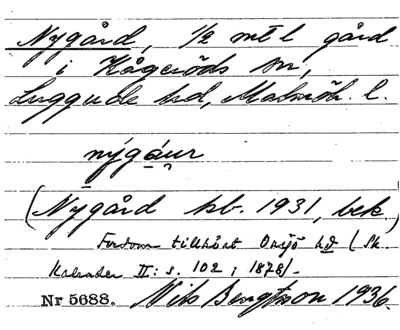 Nygård, 1/2 mtl gård
i Kågeröds sn,
Luggude hd, Malmöh. l.
nýgá̱ur
(Nygård kb. 1931, bek.)
Fordom tillhört Onsjö hd (Sk.
Kalender II: s. 102 ; 1878)-
Nr 5688. Nils Bengtsson 1936.